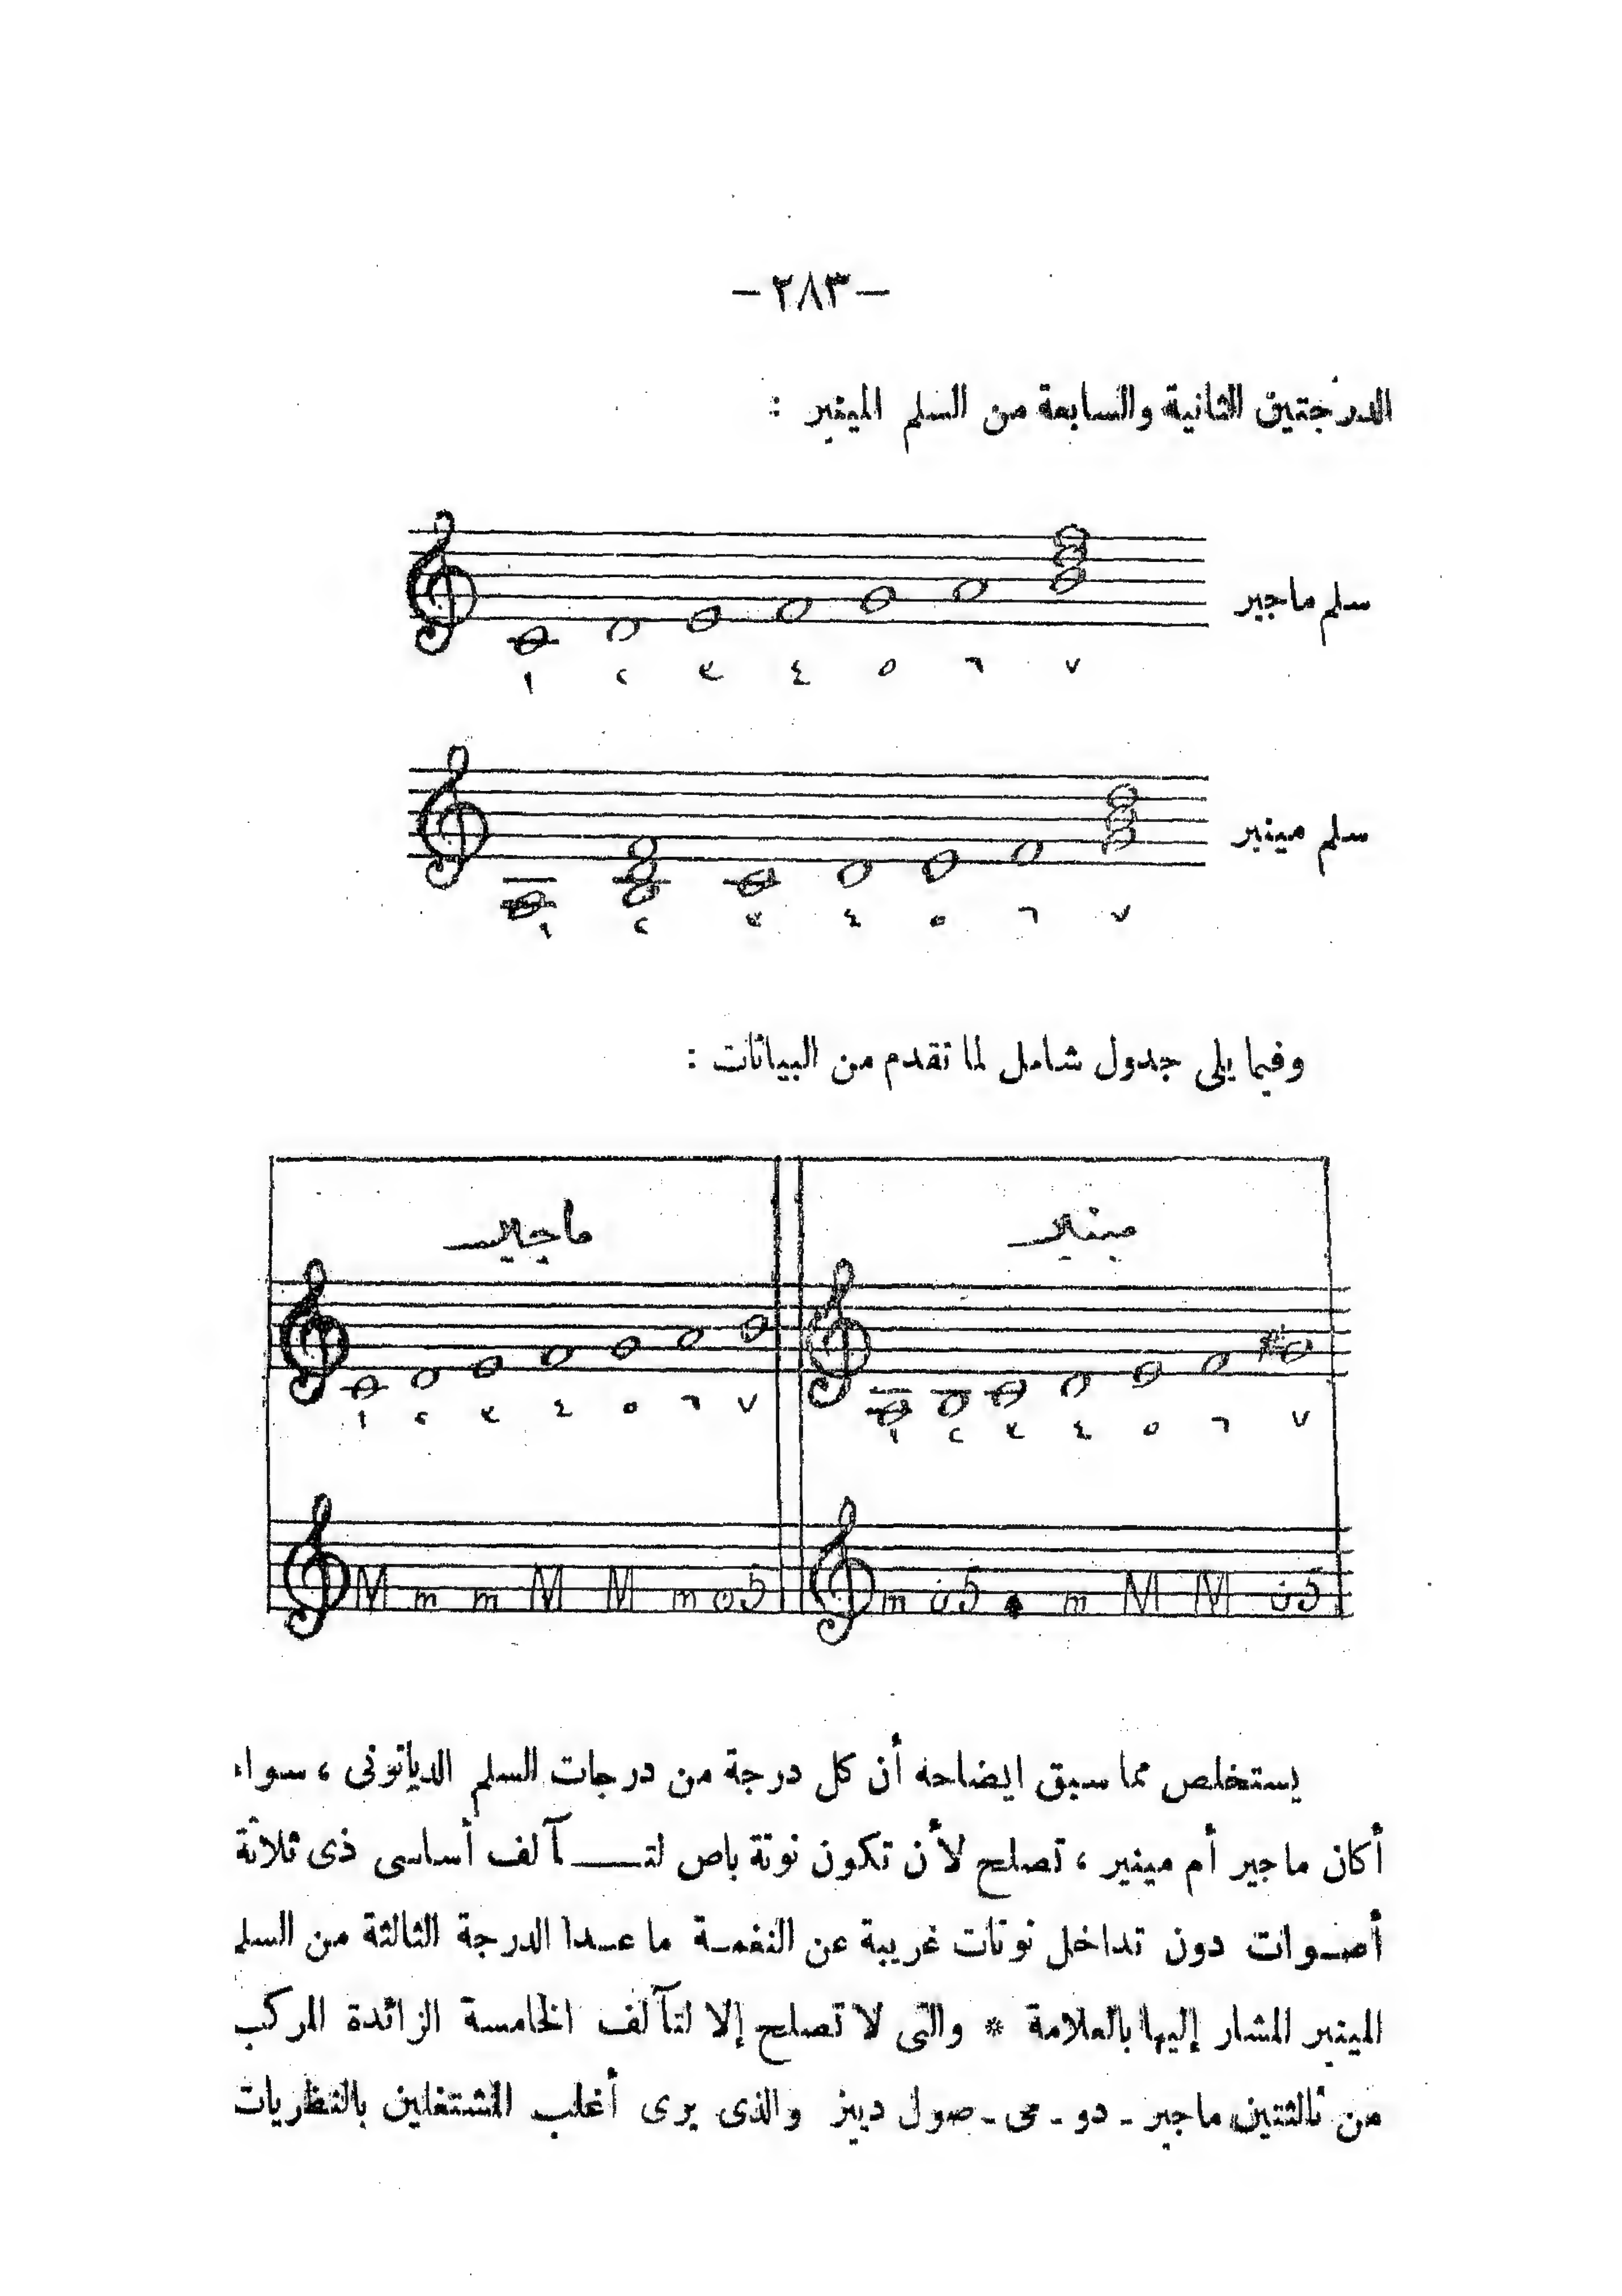 — ٢٨٣ —
الدرجتين الثانية والسابعة من السلم المينير :
سلم ماجير
١ ٢ ٣ ٤ ٥ ٦ ٧
سلم مينير
١ ٢ ٣ ٤ ٥ ٦ ٧
وفيما يلى جدول شامل لما تقدم من البيانات :
ماجير
مينير
١ ٢ ٣ ٤ ٥ ٦ ٧
١ ٢ ٣ ٤ ٥ ٦ ٧
M m m M M m
m
m M M
يستخلص مما سبق ايضاحه أن كل درجة من درجات السلم الدياتونى ، سواء
أكان ماجير أم مينير ، تصلح لأن تكون نوتة باص لتـــآلف أساسى ذى ثلاثة
أصوات دون تداخل نوتات غريبة عن النغمة ما عدا الدرجة الثالثة من السلم
المينير المشار إليها بالعلامة * والتى لا تصلح إلا لتآلف الخامسة الزائدة المركب
من ثالثتين ماجير ـ دو ـ مى ـ صول دييز والذى يرى أغلب المشتغلين بالنظريات